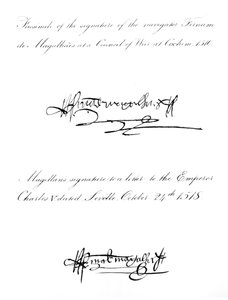 Facsimile of the signature of the navigator Fernam
de Magalhães at a Council of War at Cochim, 1510.
Magellan's signature to a letter to the Emperor
Charles V dated Seville, October 24th 1518